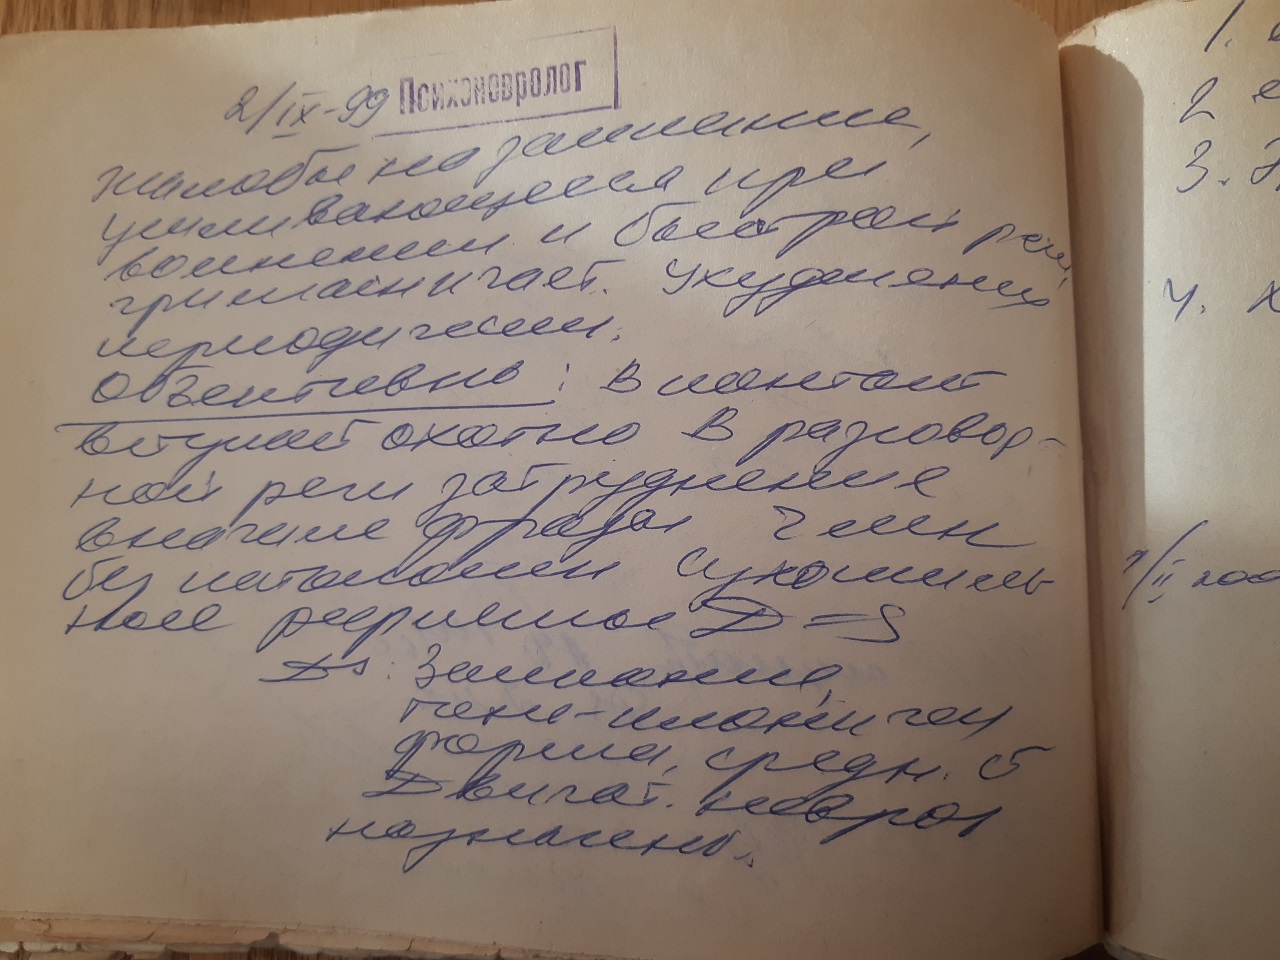 2/IX-99 Психоневролог
Жалобы на заикание,
усиливающееся при
волнении и быстрой речи,
гримасничает. Ухудшения
периодически.
Объективно: В контакт
вступает охотно В разговор-
ной речи затруднение
вначале фразы ЧМН
без патологии Сухожиль-
ные рефлексы D=S
Ds: Заикание,
тоно-клоническая
форма, средн. ст
Двигат. невроз
назначены.
1.
2
3.
4.